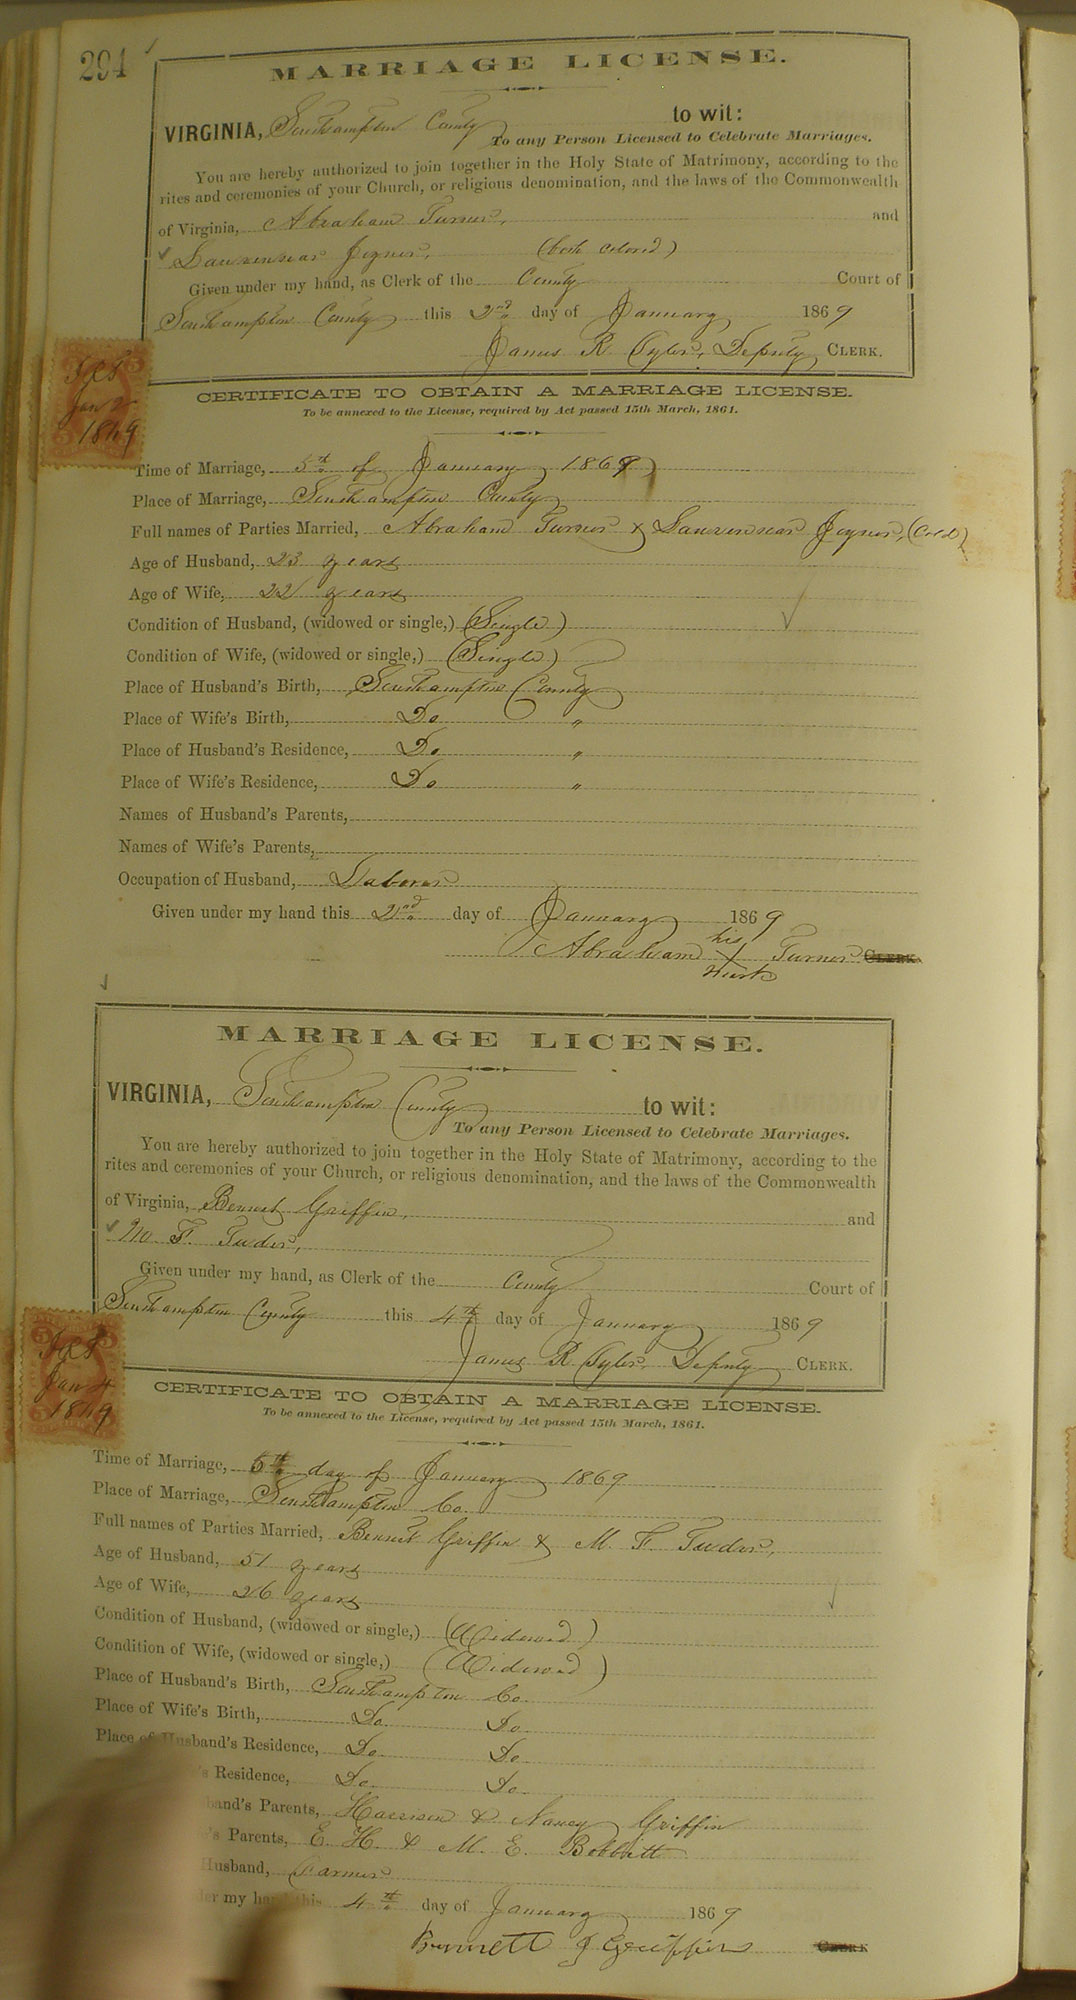 294
MARRIAGE LICENSE.
VIRGINIA, Southampton County to wit:
To any Person Licensed to Celebrate Marriages.
You are hereby authorized to join together in the Holy State of Matrimony, according to the
rites and ceremonies of your Church, or religious denomination, and the laws of the Commonwealth
of Virginia, Abraham Turner, and
Joyner, (both colored)
Given under my hand, as Clerk of the County Court of
Southampton County this 2nd day of January 1869
James R Tyler, Deputy CLERK.
Jan 2
1869
CERTIFICATE TO OBTAIN A MARRIAGE LICENSE.
To be annexed to the License, required by Act passed 15th March, 1861.
Time of Marriage, 5th of January 1869
Place of Marriage, Southampton County
Full names of Parties Married, Abraham Turner & Joyner, (Cold)
Age of Husband, 23 years
Age of Wife, 22 years
Condition of Husband, (widowed or single,) (Single)
Condition of Wife, (widowed or single,) (Single)
Place of Husband's Birth, Southampton County
Place of Wife's Birth, Do "
Place of Husband's Residence, Do "
Place of Wife's Residence, Do "
Names of Husband's Parents,
Names of Wife's Parents,
Occupation of Husband, Laborer
Given under my hand this 2nd day of January 1869
his
Abraham X Turner CLERK
mark
MARRIAGE LICENSE.
VIRGINIA, Southampton County to wit:
To any Person Licensed to Celebrate Marriages.
You are hereby authorized to join together in the Holy State of Matrimony, according to the
rites and ceremonies of your Church, or religious denomination, and the laws of the Commonwealth
of Virginia, Bennet Griffin, and
M. F. Tudor,
Given under my hand, as Clerk of the County Court of
Southampton County this 4th day of January 1869
James R Tyler, Deputy CLERK.
Jan 4
1869
CERTIFICATE TO OBTAIN A MARRIAGE LICENSE.
To be annexed to the License, required by Act passed 15th March, 1861.
Time of Marriage, 5th day of January 1869
Place of Marriage, Southampton Co.
Full names of Parties Married, Bennet Griffin & M. F. Tudor,
Age of Husband, 51 years
Age of Wife, 26 years
Condition of Husband, (widowed or single,) (Widowed)
Condition of Wife, (widowed or single,) (Widowed)
Place of Husband's Birth, Southampton Co.
Place of Wife's Birth, Do. Do.
Place of Husband's Residence, Do. Do.
's Residence, Do. Do.
band's Parents, Harrison & Nancy Griffin
's Parents, E. H. & M. E. Bobbitt
Husband, Farmer
er my hand this 4th day of January 1869
Bennett J Griffin CLERK